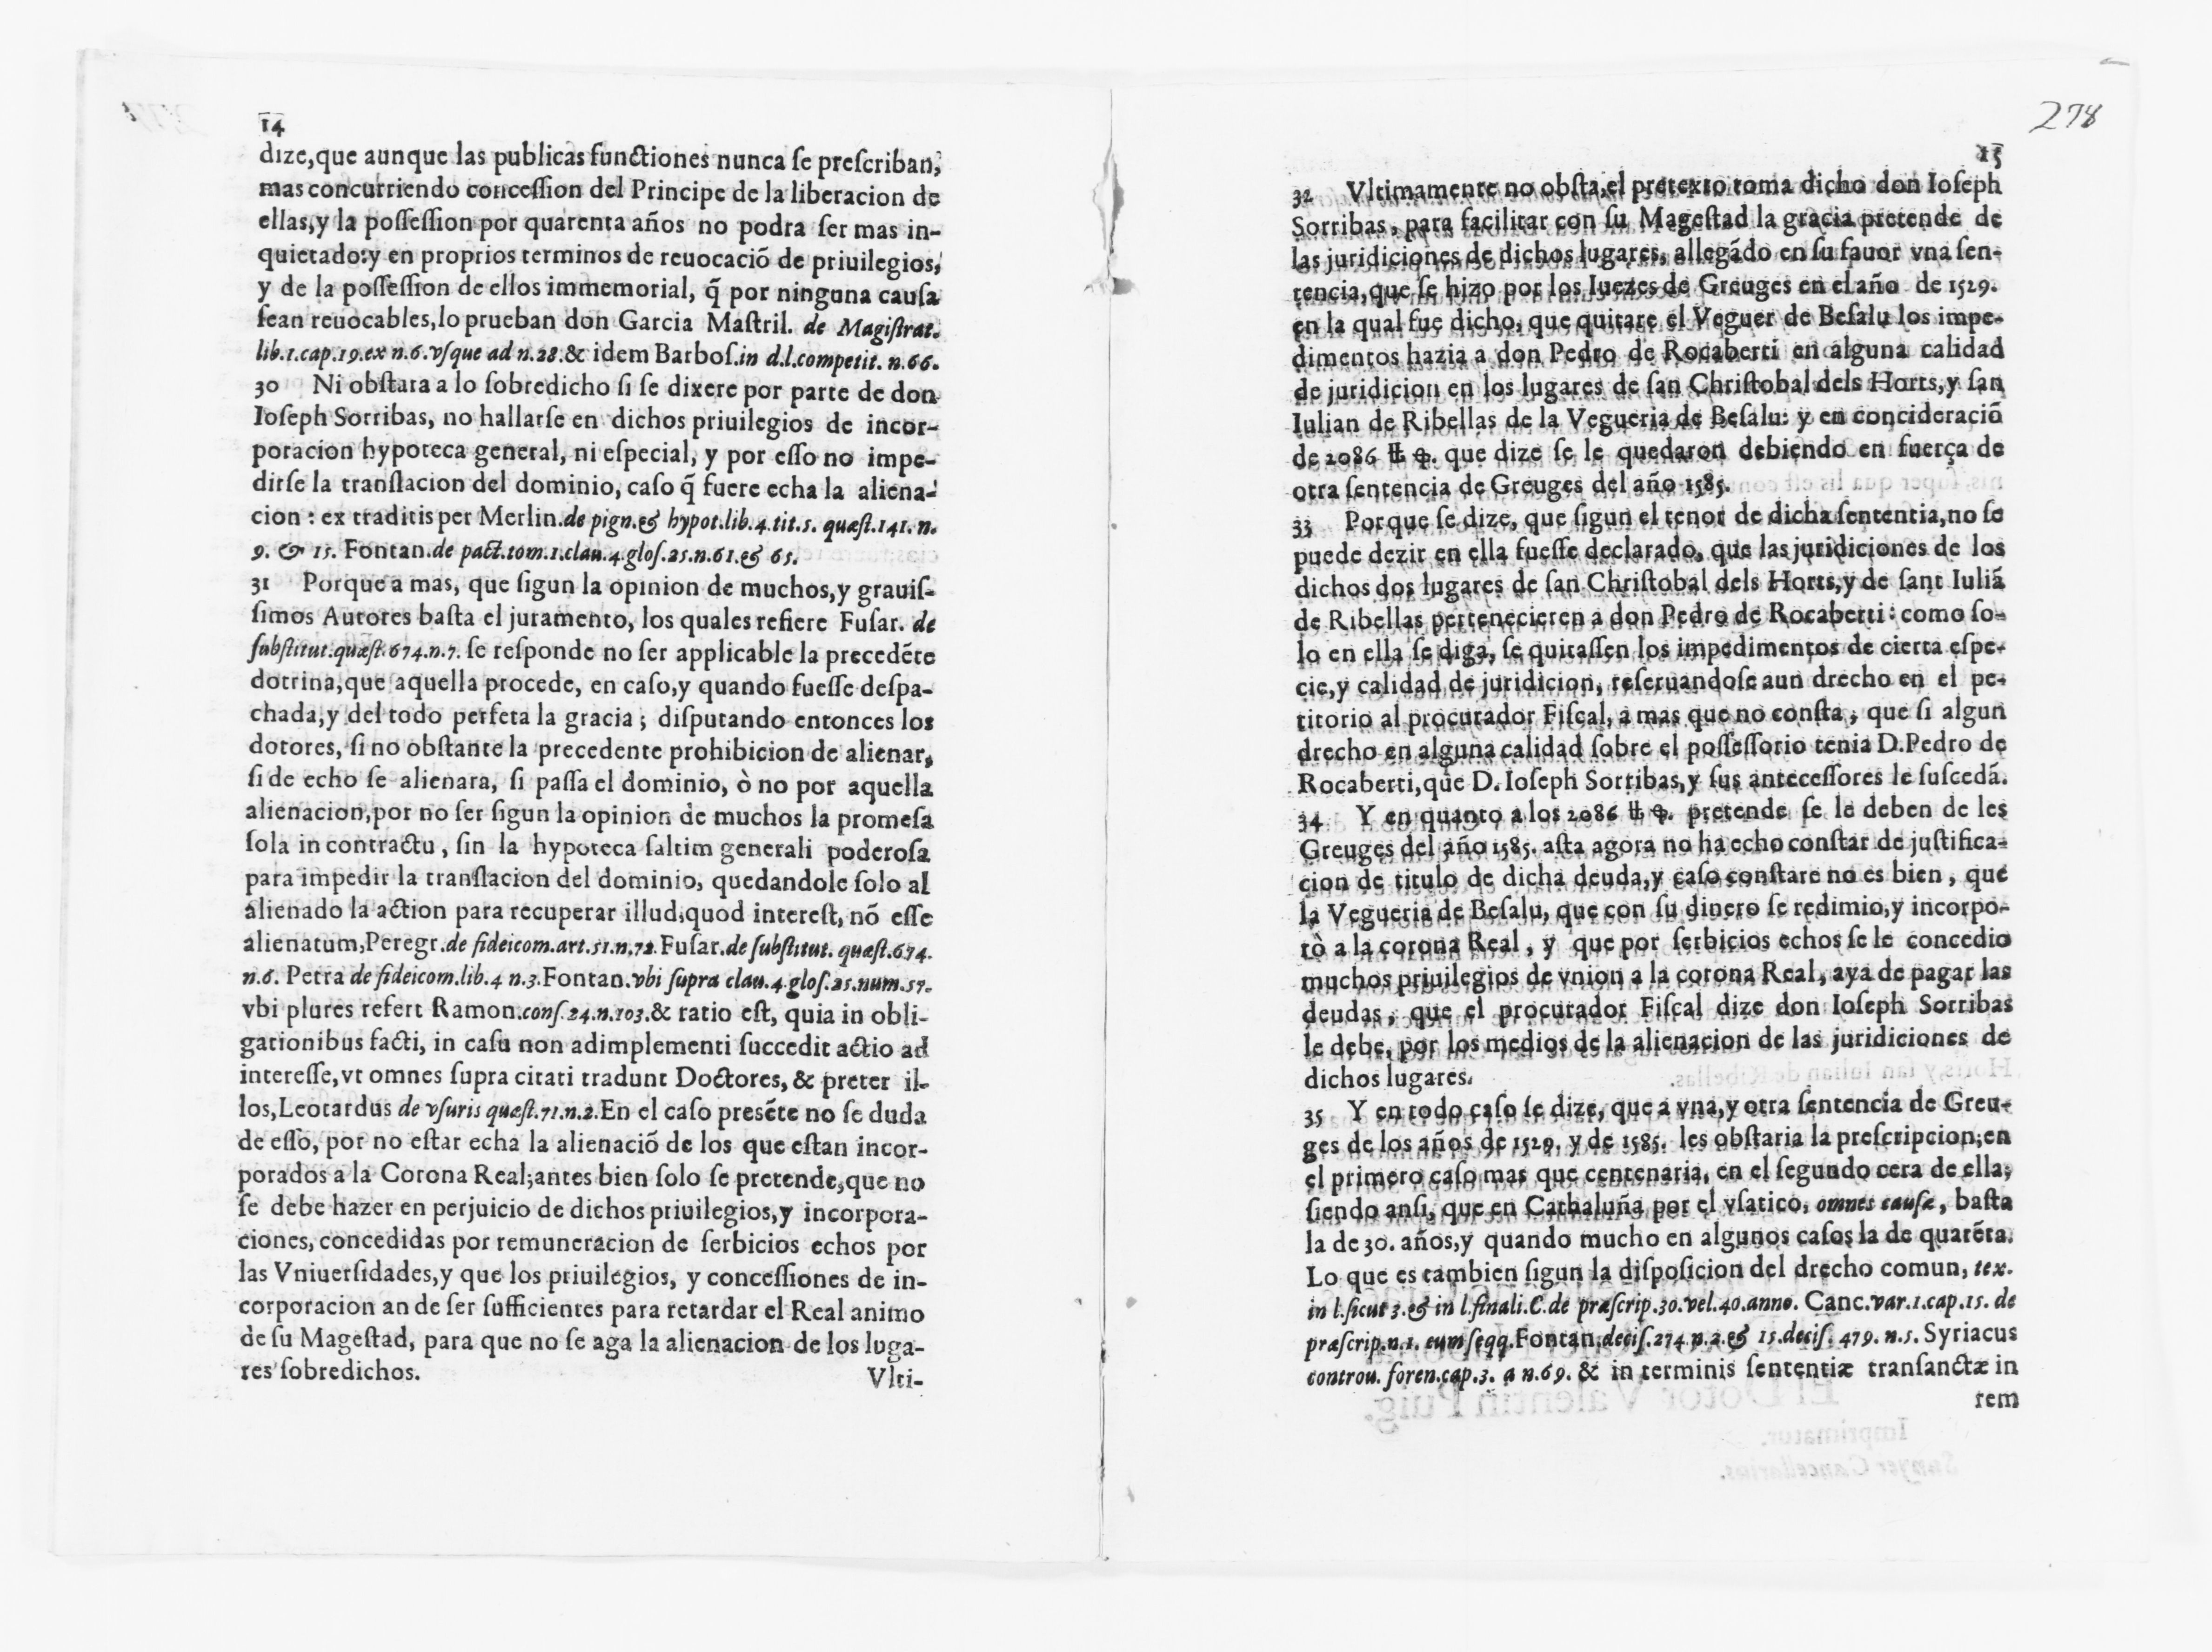 14
dize,que aunque las publicas functiones nunca ſe preſcriban,
mas concurriendo conceſſion del Principe de la liberacion de
ellas,y la poſſeſſion por quarenta años no podra ſer mas in-
quietado:y en proprios terminos de reuocaciõ de priuilegios,
y de la poſſeſſion de ellos immemorial, q̃ por ninguna cauſa
ſean reuocables,lo prueban don Garcia Maſtril. de Magiſtrat.
lib.1.cap.19.ex n.6.vſque ad n.28.& idem Barboſ.in d.l.competit. n.66.
30 Ni obſtara a lo ſobredicho ſi ſe dixere por parte de don
Ioſeph Sorribas, no hallarſe en dichos priuilegios de incor-
poracion hypoteca general, ni eſpecial, y por eſſo no impe-
dirſe la tranſlacion del dominio, caſo q̃ fuere echa la aliena-
cion : ex traditis per Merlin.de pign.& hypot.lib.4.tit.5. quæſt.141. n.
9. & 15. Fontan.de pact.tom.1.clau.4.gloſ.25.n.61.& 65.
31 Porque a mas, que ſigun la opinion de muchos,y grauiſ-
ſimos Autores baſta el juramento, los quales refiere Fuſar. de
ſubſtitut.quæſt.674.n.7. ſe reſponde no ſer applicable la precedẽte
dotrina,que aquella procede, en caſo,y quando fueſſe deſpa-
chada,y del todo perfeta la gracia ; diſputando entonces los
dotores, ſi no obſtante la precedente prohibicion de alienar,
ſi de echo ſe alienara, ſi paſſa el dominio, ò no por aquella
alienacion,por no ſer ſigun la opinion de muchos la promeſa
ſola in contractu, ſin la hypoteca ſaltim generali poderoſa
para impedir la tranſlacion del dominio, quedandole ſolo al
alienado la action para recuperar illud,quod intereſt, nõ eſſe
alienatum,Peregr.de fideicom.art.51.n.72.Fuſar.de ſubſtitut. quæſt.674.
n.6. Petra de fideicom.lib.4 n.3.Fontan.vbi ſupra clau.4.gloſ.25.num.57.
vbi plures refert Ramon.conſ.24.n.103.& ratio eſt, quia in obli-
gationibus facti, in caſu non adimplementi ſuccedit actio ad
intereſſe,vt omnes ſupra citati tradunt Doctores, & preter il-
los,Leotardus de vſuris quæſt.71.n.2.En el caſo presẽte no ſe duda
de eſſo, por no eſtar echa la alienaciõ de los que eſtan incor-
porados a la Corona Real;antes bien ſolo ſe pretende,que no
ſe debe hazer en perjuicio de dichos priuilegios,y incorpora-
ciones, concedidas por remuneracion de ſerbicios echos por
las Vniuerſidades,y que los priuilegios, y conceſſiones de in-
corporacion an de ſer ſufficientes para retardar el Real animo
de ſu Mageſtad, para que no ſe aga la alienacion de los luga-
res ſobredichos.
Vlti-
278
15
32 Vltimamente no obſta,el pretexto toma dicho don Ioſeph
Sorribas, para facilitar con ſu Mageſtad la gracia pretende de
las juridiciones de dichos lugares, allegãdo en ſu fauor vna ſen-
tencia,que ſe hizo por los Iuezes de Greuges en el año de 1529.
en la qual fue dicho, que quitare el Veguer de Beſalu los impe-
dimentos hazia a don Pedro de Rocaberti en alguna calidad
de juridicion en los lugares de ſan Chriſtobal dels Horts,y ſan
Iulian de Ribellas de la Vegueria de Beſalu: y en concideraciõ
de 2086 ℔ . que dize ſe le quedaron debiendo en fuerça de
otra ſentencia de Greuges del año 1585.
33 Porque ſe dize, que ſigun el tenor de dicha ſententia,no ſe
puede dezir en ella fueſſe declarado, que las juridiciones de los
dichos dos lugares de ſan Chriſtobal dels Horts,y de ſant Iuliã
de Ribellas pertenecieren a don Pedro de Rocaberti : como ſo-
lo en ella ſe diga, ſe quitaſſen los impedimentos de cierta eſpe-
cie,y calidad de juridicion, reſeruandoſe aun drecho en el pe-
titorio al procurador Fiſcal, a mas que no conſta, que ſi algun
drecho en alguna calidad ſobre el poſſeſſorio tenia D.Pedro de
Rocaberti,que D. Ioſeph Sorribas,y ſus anteceſſores le ſuſcedã.
34 Y en quanto a los 2086 ℔ . pretende ſe le deben de les
Greuges del año 1585. aſta agora no ha echo conſtar de juſtifica-
cion de titulo de dicha deuda,y caſo conſtare no es bien, que
la Vegueria de Beſalu, que con ſu dinero ſe redimio,y incorpo-
rò a la corona Real, y que por ſerbicios echos ſe le concedio
muchos priuilegios de vnion a la corona Real, aya de pagar las
deudas, que el procurador Fiſcal dize don Ioſeph Sorribas
le debe, por los medios de la alienacion de las juridiciones de
dichos lugares.
35 Y en todo caſo ſe dize, que a vna,y otra ſentencia de Greu-
ges de los años de 1529. y de 1585. les obſtaria la preſcripcion;en
el primero caſo mas que centenaria, en el ſegundo cera de ella;
ſiendo anſi, que en Cathaluña por el vſatico, omnes cauſæ, baſta
la de 30. años,y quando mucho en algunos caſos la de quarẽta.
Lo que es tambien ſigun la diſpoſicion del drecho comun, tex.
in l.ſicut 3.& in l.finali.C.de præſcrip.30.vel.40.anno. Canc.var.1.cap.15. de
præſcrip.n.1. cum ſeqq.Fontan.deciſ.274.n.2.& 15.deciſ. 479. n.5. Syriacus
controu. foren.cap.3. a n.69. & in terminis ſententiæ tranſanctæ in
rem